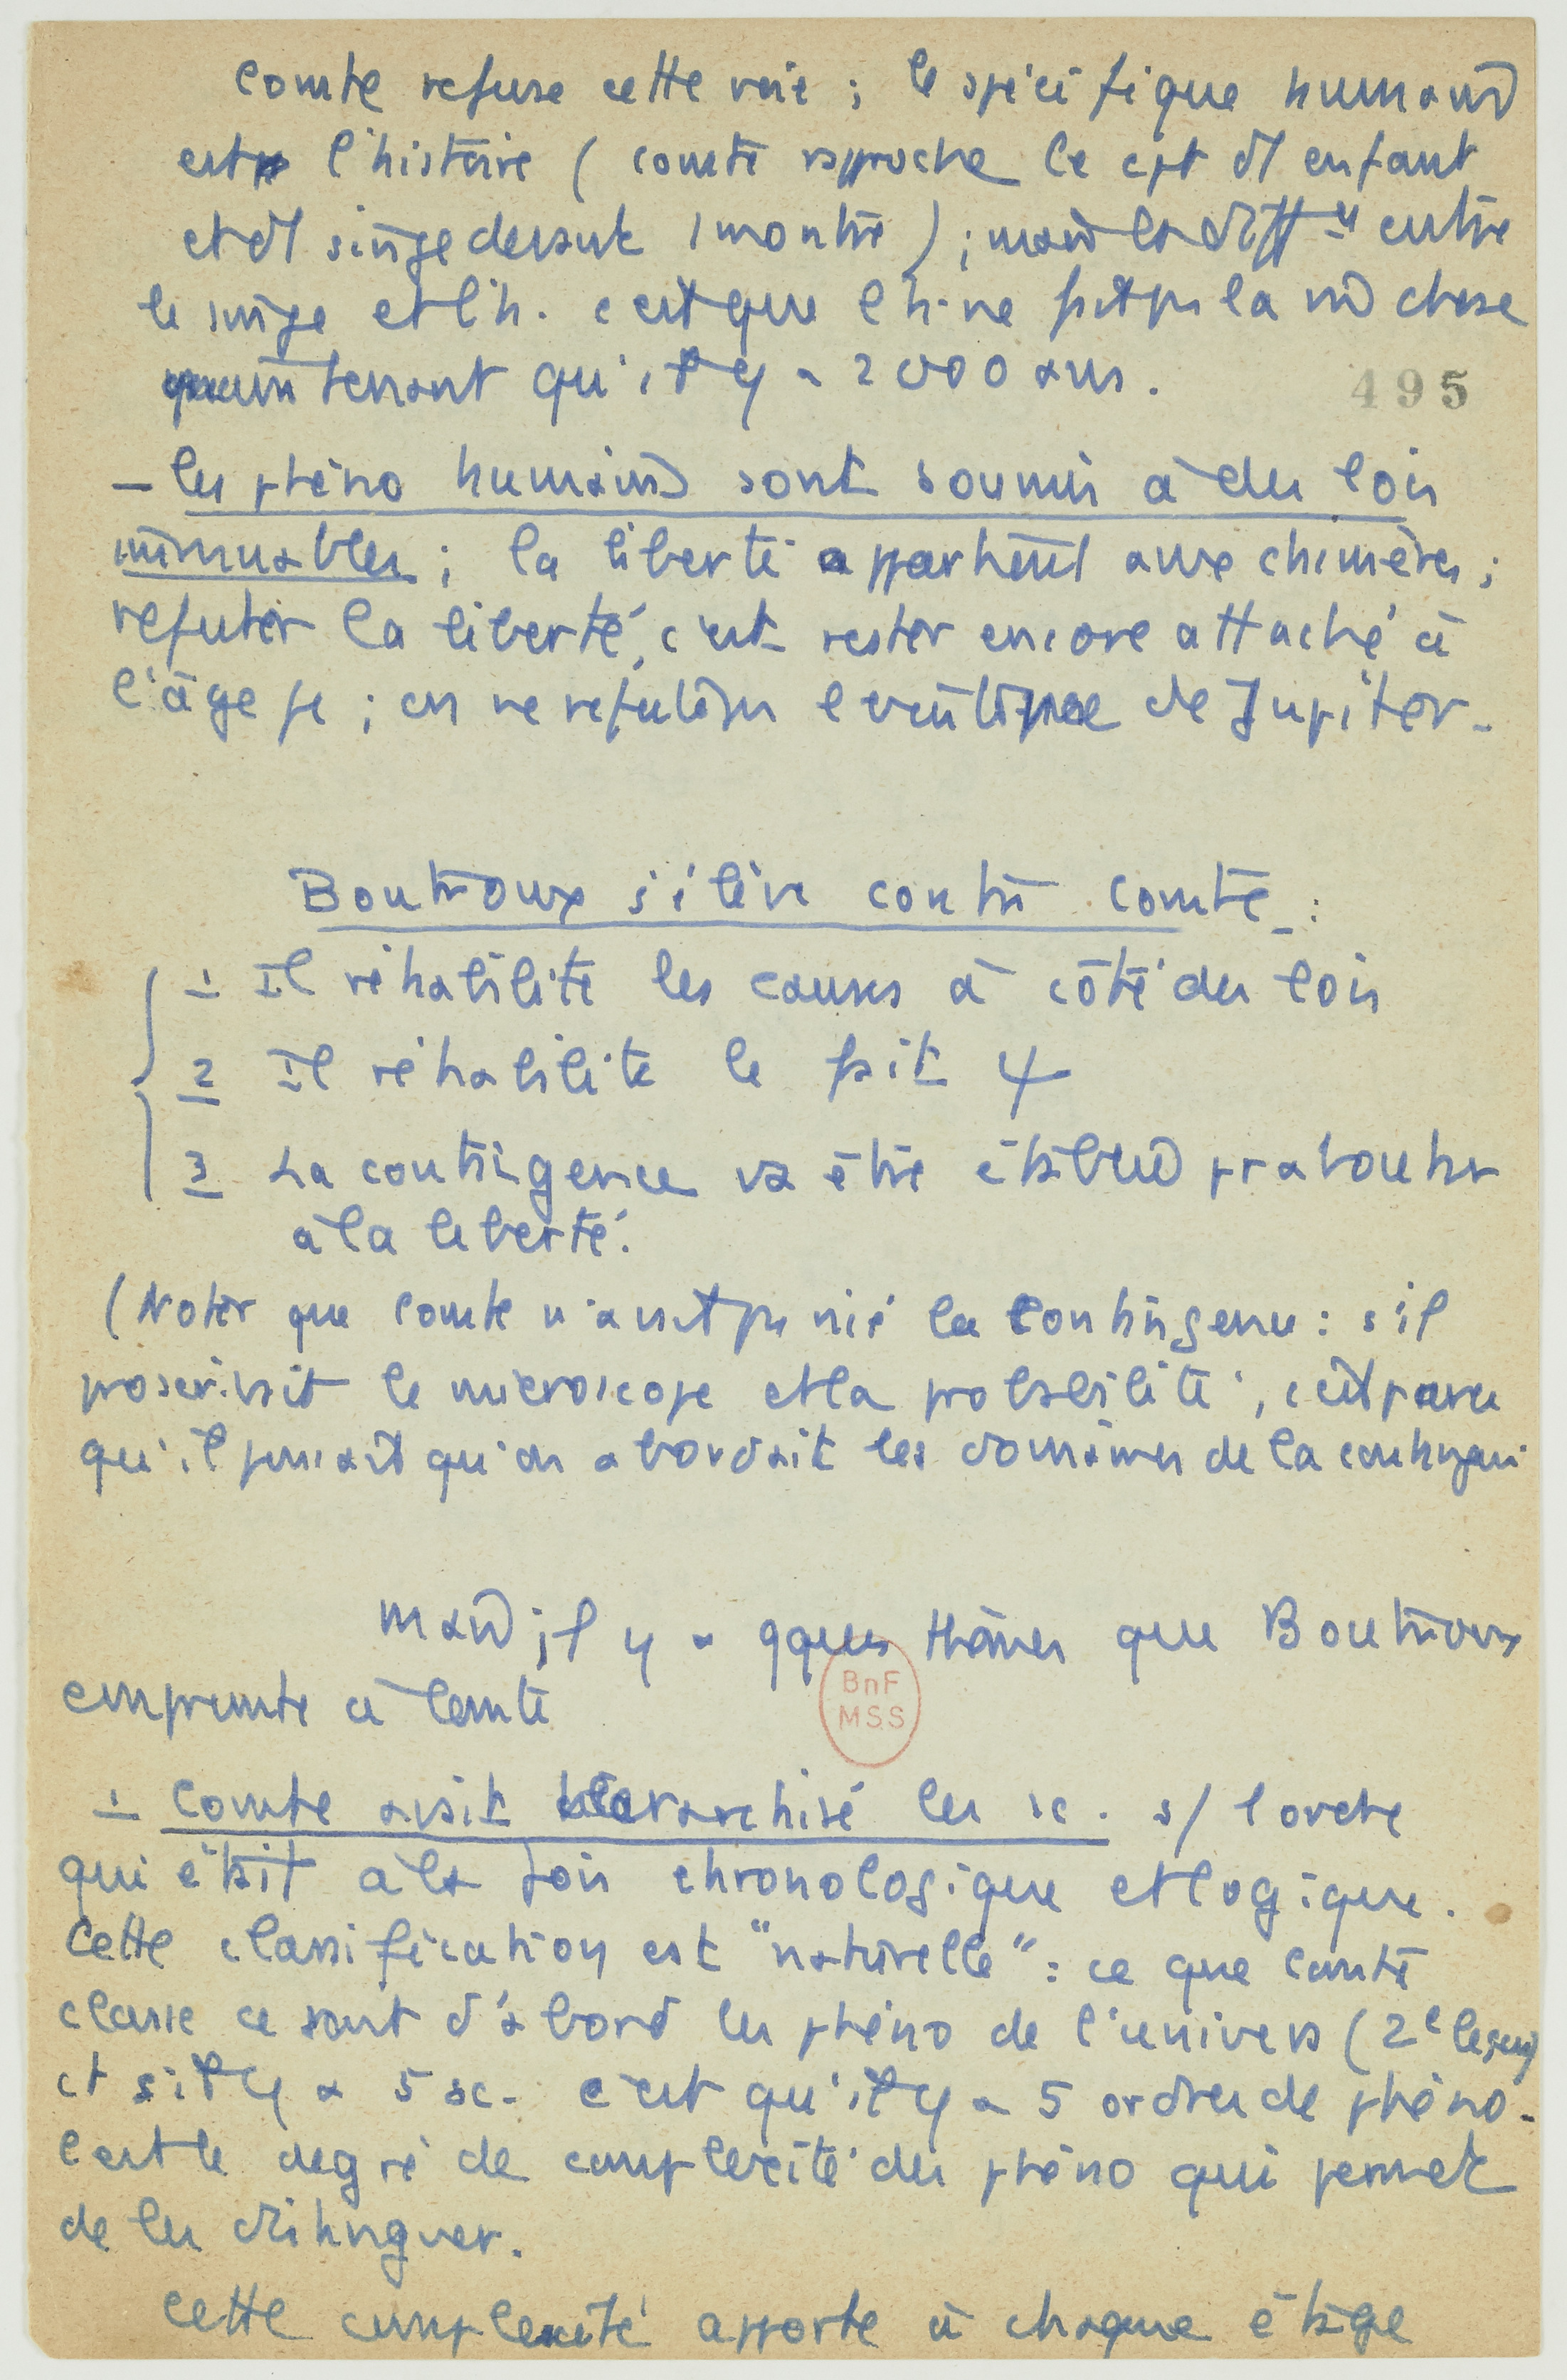 Comte refuse cette voie ; le spécifique humain
est l'histoire ( Comte rapproche le cpt d'1 enfant
et d'1 singe devant 1 montre ) ; mais la diff entre
le singe et l'h. c'est que l'h. ne fait pas la m chose
maintenant qu'il y a 2000 ans.
495
– les phéno humains sont soumis à des lois
immuables ; la liberté appartient aux chimères ;
réfuter la liberté, c'est rester encore attaché à
l'âge ; on ne réfute pas l'existence de Jupiter.
Boutroux s'élève contre Comte :
1 Il réhabilite les causes à côté des lois
2 Il réhabilite le fait ψ
3 La contingence va être établie pr aboutir
à la liberté.
(Noter que Comte n'avait pas nié la contingence : s'il
proscrivait le microscope et la probabilité, c'est parce
qu'il pensait qu'on abordait les domaines de la contingence
Mais il y a qques thèmes que Boutroux
emprunte à Comte
1 Comte avait hiérarchisé les sc. s/ l'ordre
qui était à la fois chronologique et logique.
Cette classification est "naturelle" : ce que Comte
classe ce sont d'abord les phéno de l'univers (2e leçon)
et s'il y a 5 sc. c'est qu'il y a 5 ordres de phéno.
C'est le degré de complexité des phéno qui permet
de les distinguer.
Cette complexité apporte à chaque étage
BnF
MSS